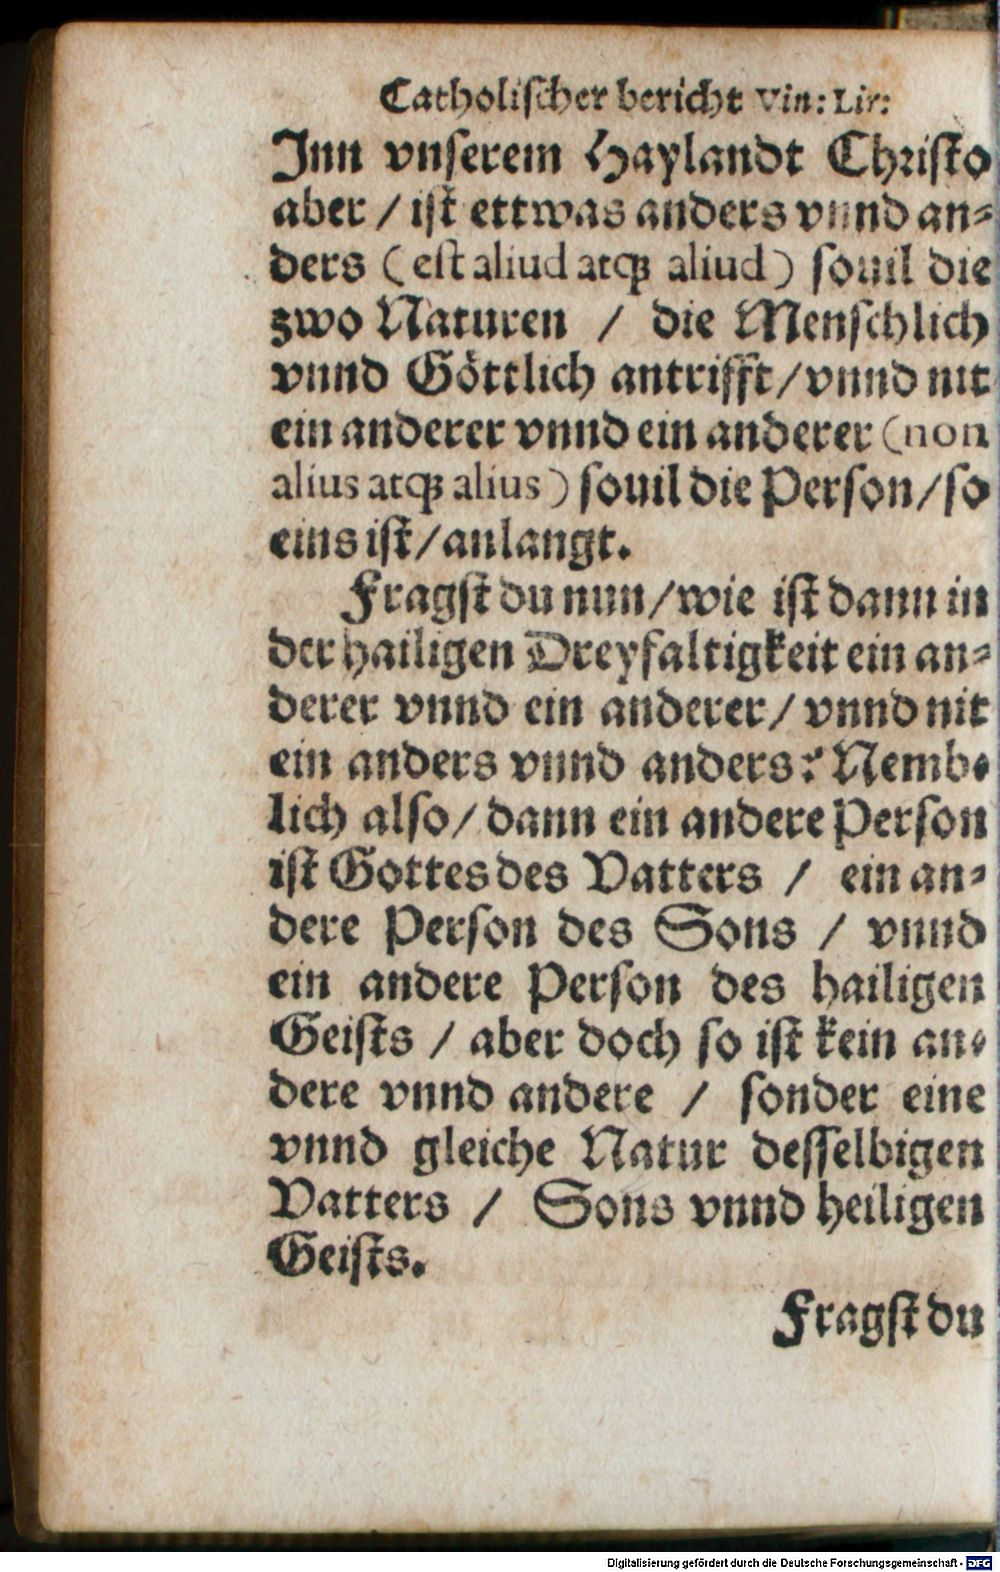 Catholischer bericht Vin: Lir:
Jnn vnserem Haylandt Christo
aber / ist ettwas anders vnnd an⸗
ders ( est aliud atqꝫ aliud ) souil die
zwo Naturen / die Menschlich
vnnd Göttlich antrifft / vnnd nit
ein anderer vnnd ein anderer (non
alius atqꝫ alius ) souil die Person / so
eins ist / anlangt.
Fragst du nun / wie ist dann in
der hailigen Dreyfaltigkeit ein an⸗
derer vnnd ein anderer / vnnd nit
ein anders vnnd anders? Nemb⸗
lich also / dann ein andere Person
ist Gottes des Vatters / ein an⸗
dere Person des Sons / vnnd
ein andere Person des hailigen
Geists / aber doch so ist kein an⸗
dere vnnd andere / sonder eine
vnnd gleiche Natur desselbigen
Vatters / Sons vnnd heiligen
Geists.
Fragst du
Digitalisierung gefördert durch die Deutsche Forschungsgemeinschaft - DFG